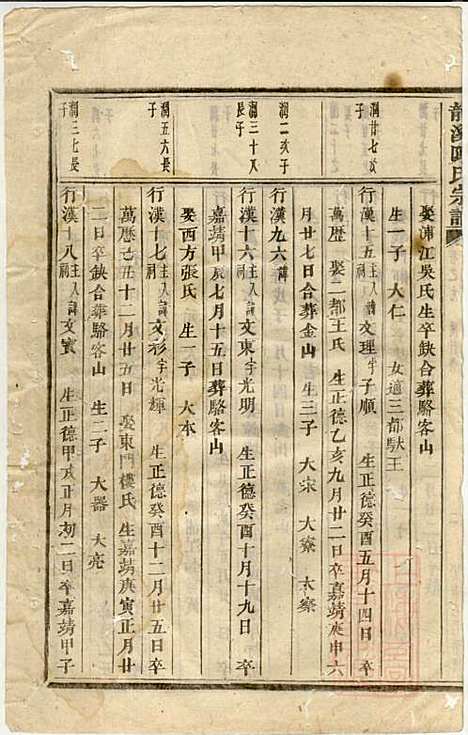 龍溪 氏宗譜
娶浦江吳氏生卒缺合葬駱客山
生一子 大仁 女適三都馱王
潤廿七次子
行漢十五 主入祠 諱文理字子順 生正德癸酉五月十四日卒
萬歷 娶二都王氏 生正德乙亥九月廿二日卒嘉靖庚申六
月廿七日合葬金山 生三子 大宋 大寮 大察
潤二次子
行漢九六 諱
潤三十八長子
行漢十六 主入祠 諱文東字光明 生正德癸酉十月十九日 卒
嘉靖甲辰七月十五日葬駱客山
娶西方張氏 生一子 大本
潤五六長子
行漢十七 主入祠 諱文彩字光輝 生正德癸酉十二月廿五日卒
萬歷己丑十二月廿五日 娶東門樓氏 生嘉靖庚寅正月廿
二日卒缺合葬駱客山 生二子 大器 大亮
潤三七長子
行漢十八 主入祠 諱文賓 生正德甲戌正月初二日卒嘉靖甲子